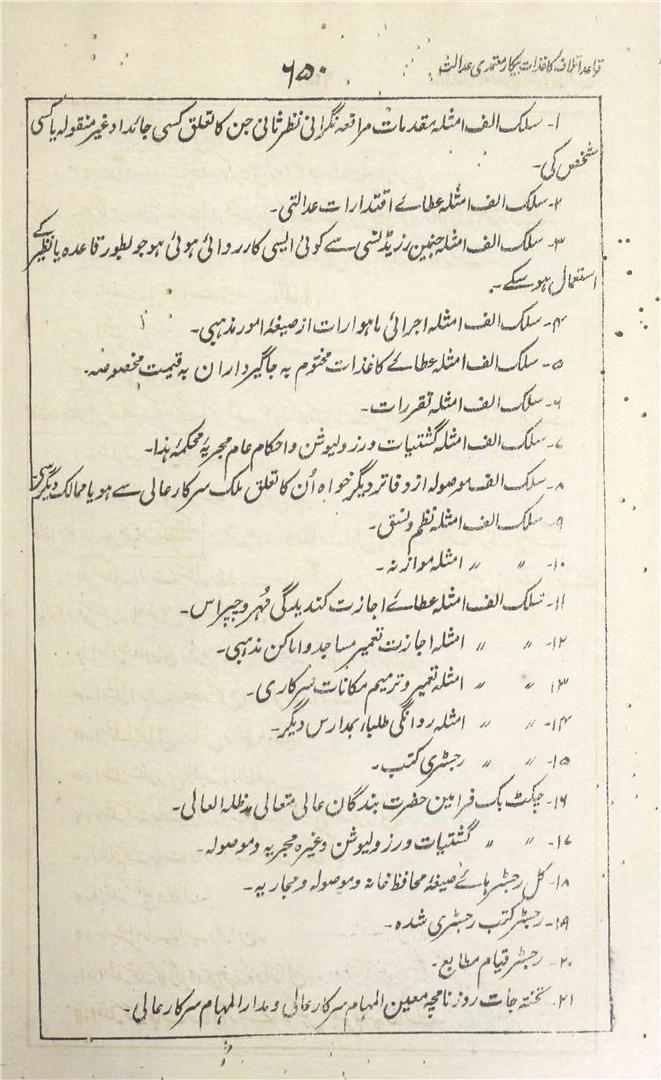 قواعد اتلاف کاغذات بیکار معتمدی عدالت
۶۵۰
۱۔ سلک الف امثلہ مقدمات مرافعہ نگرانی نظرثانی جن کا تعلق کسی جائداد غیر منقولہ یا کسی
شخص کی۔
۲۔ سلک الف امثلہ عطائے اقتدارات عدالتی۔
۳۔ سلک الف امثلہ جنمیں رزیڈنسی سے کوئی ایسی کارروائی ہوئی ہو جو بطور قاعدہ یا نظیر کے
استعمال ہوسکے۔
۴۔ سلک الف امثلہ اجرائی ماہوارات از صیغۂ امور مذہبی۔
۵۔ سلک الف امثلہ عطائے کاغذات مختوم بہ جاگیرداران بہ قیمت مخصوصہ۔
۶۔ سلک الف امثلہ تقررات۔
۷۔ سلک الف امثلہ گشتیات ورزولیوشن و احکام عام مجریۂ محکمۂ ہذا۔
۸۔ سلک الف موصولہ از دفاتر دیگر خواہ اُن کا تعلق ملک سرکار عالی سے ہو یا ممالک دیگر سے۔
۹۔ سلک الف امثلہ نظم و نسق۔
۱۰۔ 〃 〃 امثلہ موازنہ۔
۱۱۔ سلک الف امثلہ عطائے اجازت کندیدگی مُہر و چپراس۔
۱۲۔ 〃 〃 امثلہ اجازت تعمیر مساجد و اماکن مذہبی۔
۱۳۔ 〃 〃 امثلہ تعمیر و ترمیم مکانات سرکاری۔
۱۴۔ 〃 〃 امثلہ روانگی طلباء بمدارس دیگر۔
۱۵۔ 〃 〃 رجسٹری کتب۔
۱۶۔ جیکٹ بک فرامین حضرت بندگان عالی متعالی مدظلہ العالی۔
۱۷۔ 〃 〃 گشتیات ورزولیوشن وغیرہ مجریہ و موصولہ۔
۱۸۔ کل رجسٹر ہائے صیغۂ محافظ خانہ و موصولہ و مجاریہ۔
۱۹۔ رجسٹر کتب رجسٹری شدہ۔
۲۰۔ رجسٹر قیام مطابع۔
۲۱۔ تختہ جات روزنامچہ معین المہام سرکار عالی و مدار المہام سرکار عالی۔